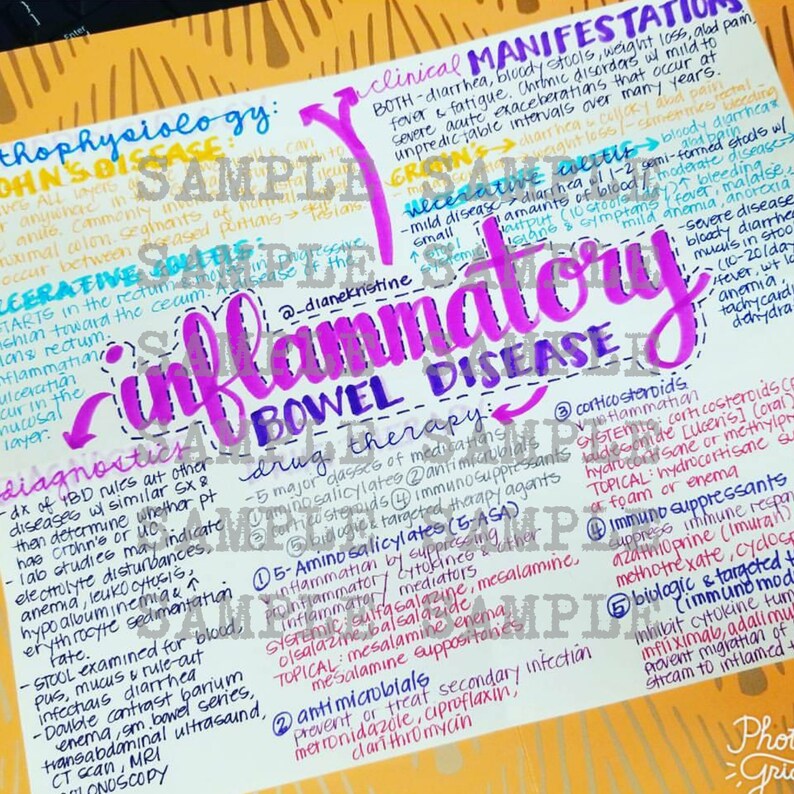 Enter
thophysiology:
OHN'S DISEASE:
VES ALL layers
anywhere in
& anus. Commonly
oximal colon. segments of normal
occur between diseased portions → skip
lesions
CERATIVE COLITIS:
STARTS in the rectum & moves in progressive
shion toward the cecum. disease of the
lon & rectum.
inflammation
ulceration
cur in the
mucosal
layer.
clinical MANIFESTATIONS
BOTH - diarrhea, bloody stools, weight loss, abd pain,
fever & fatigue. Chronic disorders w/ mild to
severe acute exacerbations that occur at
unpredictable intervals over many years.
CROHN'S → diarrhea & colicky abd pain
weight loss/- sometimes rectal
bleeding
ULCERATIVE COLITIS → bloody diarrhea &
abd pain
- mild disease → diarrhea w/ 1-2 semi-formed stools w/
small amounts of blood - moderate disease →
output (10 stools/day) ↑ bleeding,
signs & symptoms (fever, malaise,
mild anemia, anorexia
- severe disease
bloody diarrhea
mucus in stool
(10-20/day
fever, wt lo
anemia,
tachycardi
dehydra
@_dianekristine
inflammatory
BOWEL DISEASE
diagnostics
- dx of IBD rules out other
diseases w/ similar SX &
then determine whether pt
has Crohn's or UC
- lab studies may indicate
electrolyte disturbances,
anemia, leukocytosis,
hypoalbuminemia & ↑
erythrocyte sedimentation
rate.
- STOOL examined for blood,
pus, mucus & rule-out
infectious diarrhea
- Double contrast barium
enema, sm. bowel series,
transabdominal ultrasound,
CT scan, MRI
COLONOSCOPY
drug therapy:
- 5 major classes of medications
① aminosalicylates ② antimicrobials
③ corticosteroids ④ immunosuppressants
⑤ biologic & targeted therapy agents
① 5-Aminosalicylates (5-ASA)
↓ inflammation by suppressing
proinflammatory cytokines & other
inflammatory mediators
SYSTEMIC: sulfasalazine, mesalamine,
olsalazine, balsalazide
TOPICAL: mesalamine enema,
mesalamine suppositories
② antimicrobials
prevent or treat secondary infection
metronidazole, ciproflaxin,
clarithromycin
③ corticosteroids
↓ inflammation
SYSTEMIC: corticosteroids (
budesonide [Uceris] (oral)
hydrocortisone or methylpr
TOPICAL: hydrocortisone su
or foam or enema
④ immunosuppressants
suppress immune respon
azathioprine (imuran)
methotrexate, cyclosp
⑤ biologic & targeted t
(immunomod
inhibit cytokine tum
infliximab, adalimu
prevent migration of
stream to inflamed t
SAMPLE SAMPLE
SAMPLE SAMPLE
SAMPLE SAMPLE
SAMPLE SAMPLE
SAMPLE SAMPLE
SAMPLE SAMPLE
Photo
Grid